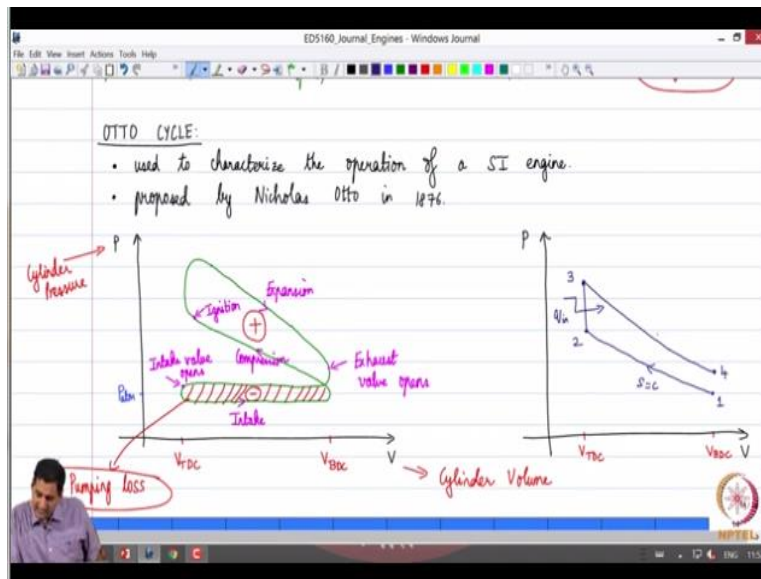 ED5160_Journal_Engines - Windows Journal
File Edit View Insert Actions Tools Help
OTTO CYCLE:
• used to characterize the operation of a SI engine.
• proposed by Nicholas Otto in 1876.
P
Cylinder Pressure
Ignition
Expansion
+
Compression
Intake valve opens
Exhaust valve opens
Patm
-
Intake
VTDC
VBDC
V
Cylinder Volume
Pumping Loss
P
3
qin
2
S=C
4
1
VTDC
VBDC
V
NPTEL
ENG